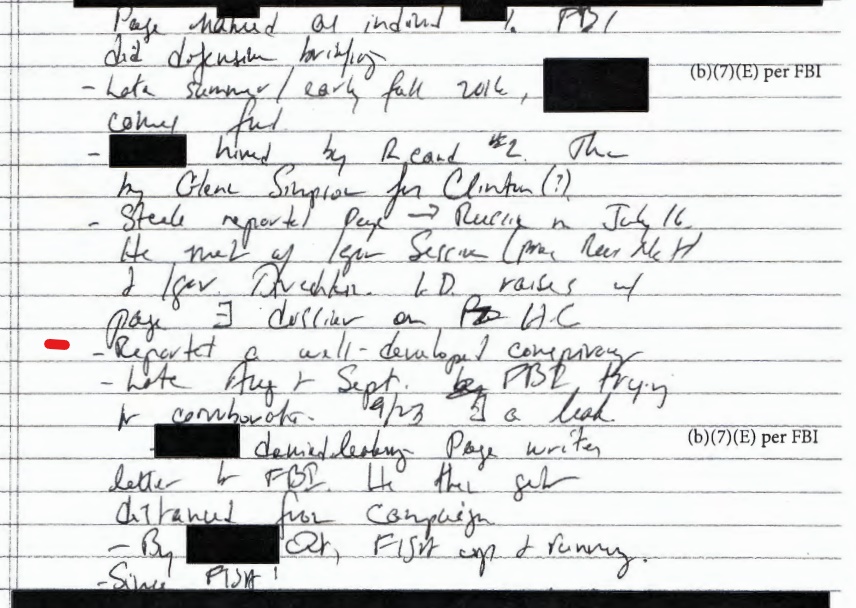 Page named as individ 1. FBI
did defensive briefing
- Late summer/early fall 2016, (b)(7)(E) per FBI
comes
- hired by R cand #2. Then
by Glenn Simpson for Clinton (?)
- Steele reported Page → Russia in July 16.
He met w/ Igor
& Igor I.D. raises w/
page ∃ dossier on HC
- Reported a well-developed conspiracy
- Late Aug & Sept. FBI trying
to corroborate. 9/23 ∃ a leak.
- denied leaking Page writes (b)(7)(E) per FBI
letter to FBI. He then gets
distanced from Campaign
- By Oct, FISA app & running.
- Since FISA